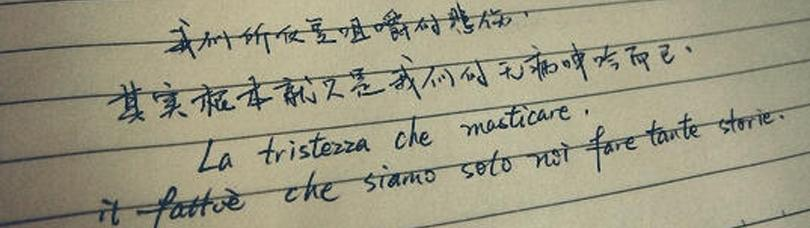 我们所反复咀嚼的悲伤.
其实根本就只是我们的无病呻吟而已.
La tristezza che masticare.
il fattoè che siamo solo noi fare tante storie.